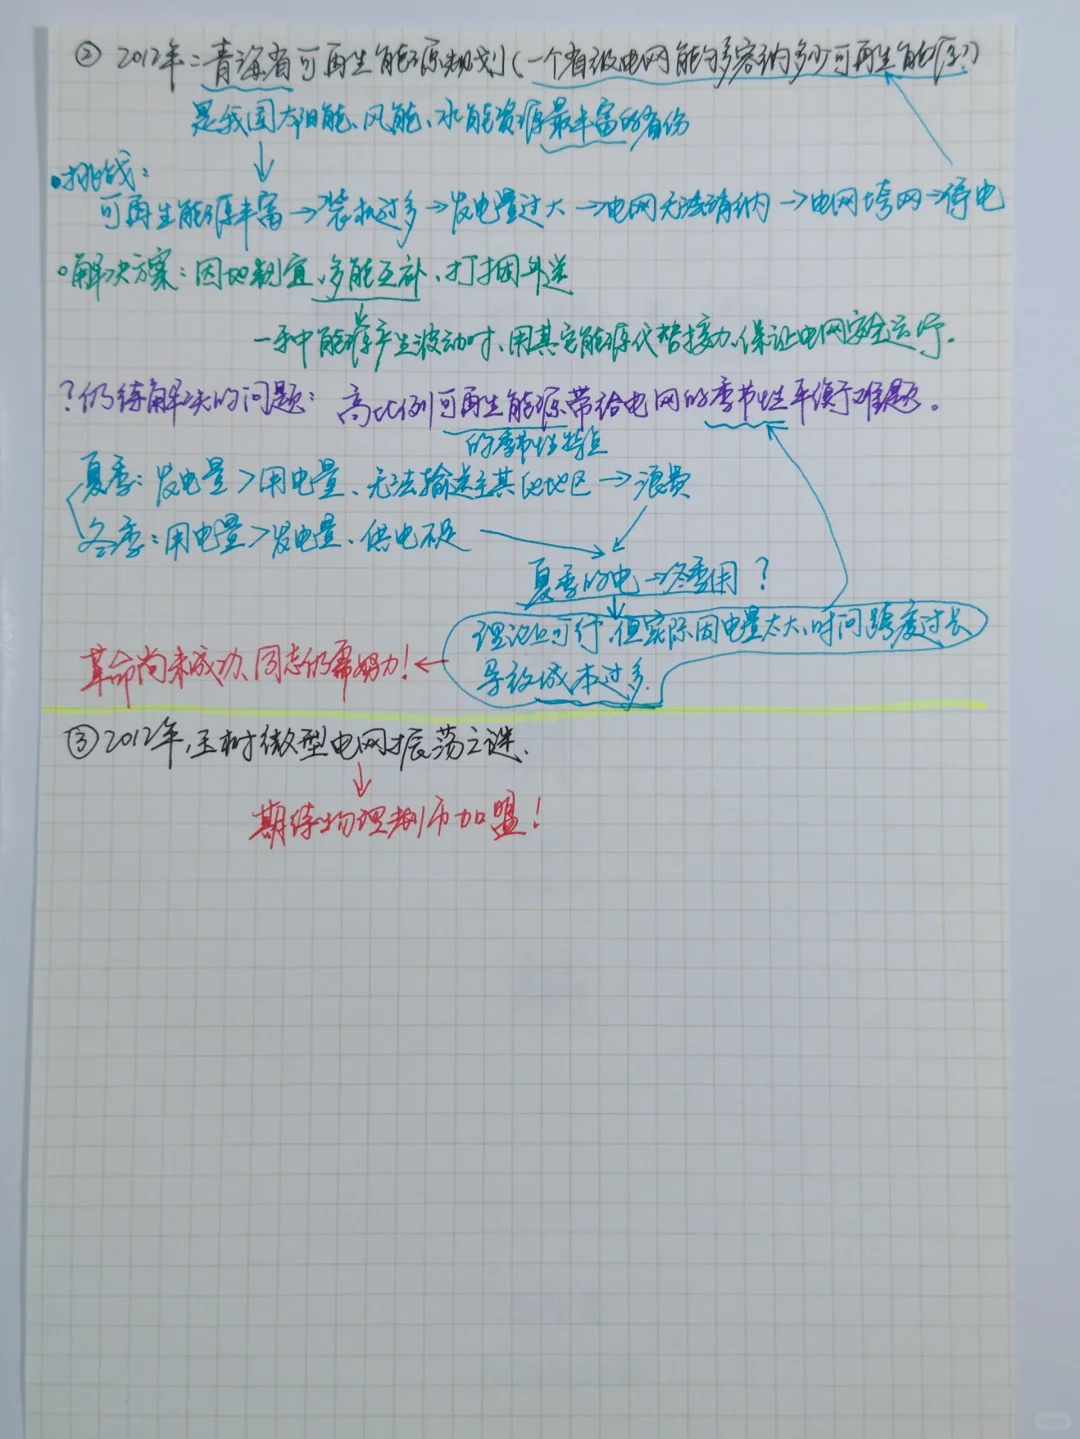 ② 2012年：青海省可再生能源规划（一个省级电网能够容纳多少可再生能源？）
是我国太阳能、风能、水能资源最丰富的省份
•挑战：
可再生能源丰富→装机过多→发电量过大→电网无法消纳→电网垮网→停电
•解决方案：因地制宜、多能互补、打捆外送
一种能源产生波动时，用其它能源代替接力，保证电网安全运行。
？仍待解决的问题：高比例可再生能源带给电网的季节性平衡难题。
的季节性特点
夏季：发电量>用电量、无法输送至其他地区→浪费
冬季：用电量>发电量、供电不足
夏季的电→冬季用？
理论上可行，但实际因电量太大、时间跨度过长
导致成本过多
革命尚未成功、同志仍需努力！←
③2012年，玉树微型电网振荡之谜.
期待物理制币加盟！